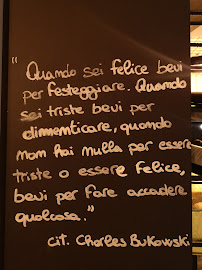 "Quando sei felice bevi
per festeggiare. Quando
sei triste bevi per
dimenticare, quando
non hai nulla per essere
triste o essere felice,
bevi per fare accadere
qualcosa."
cit. Charles Bukowski